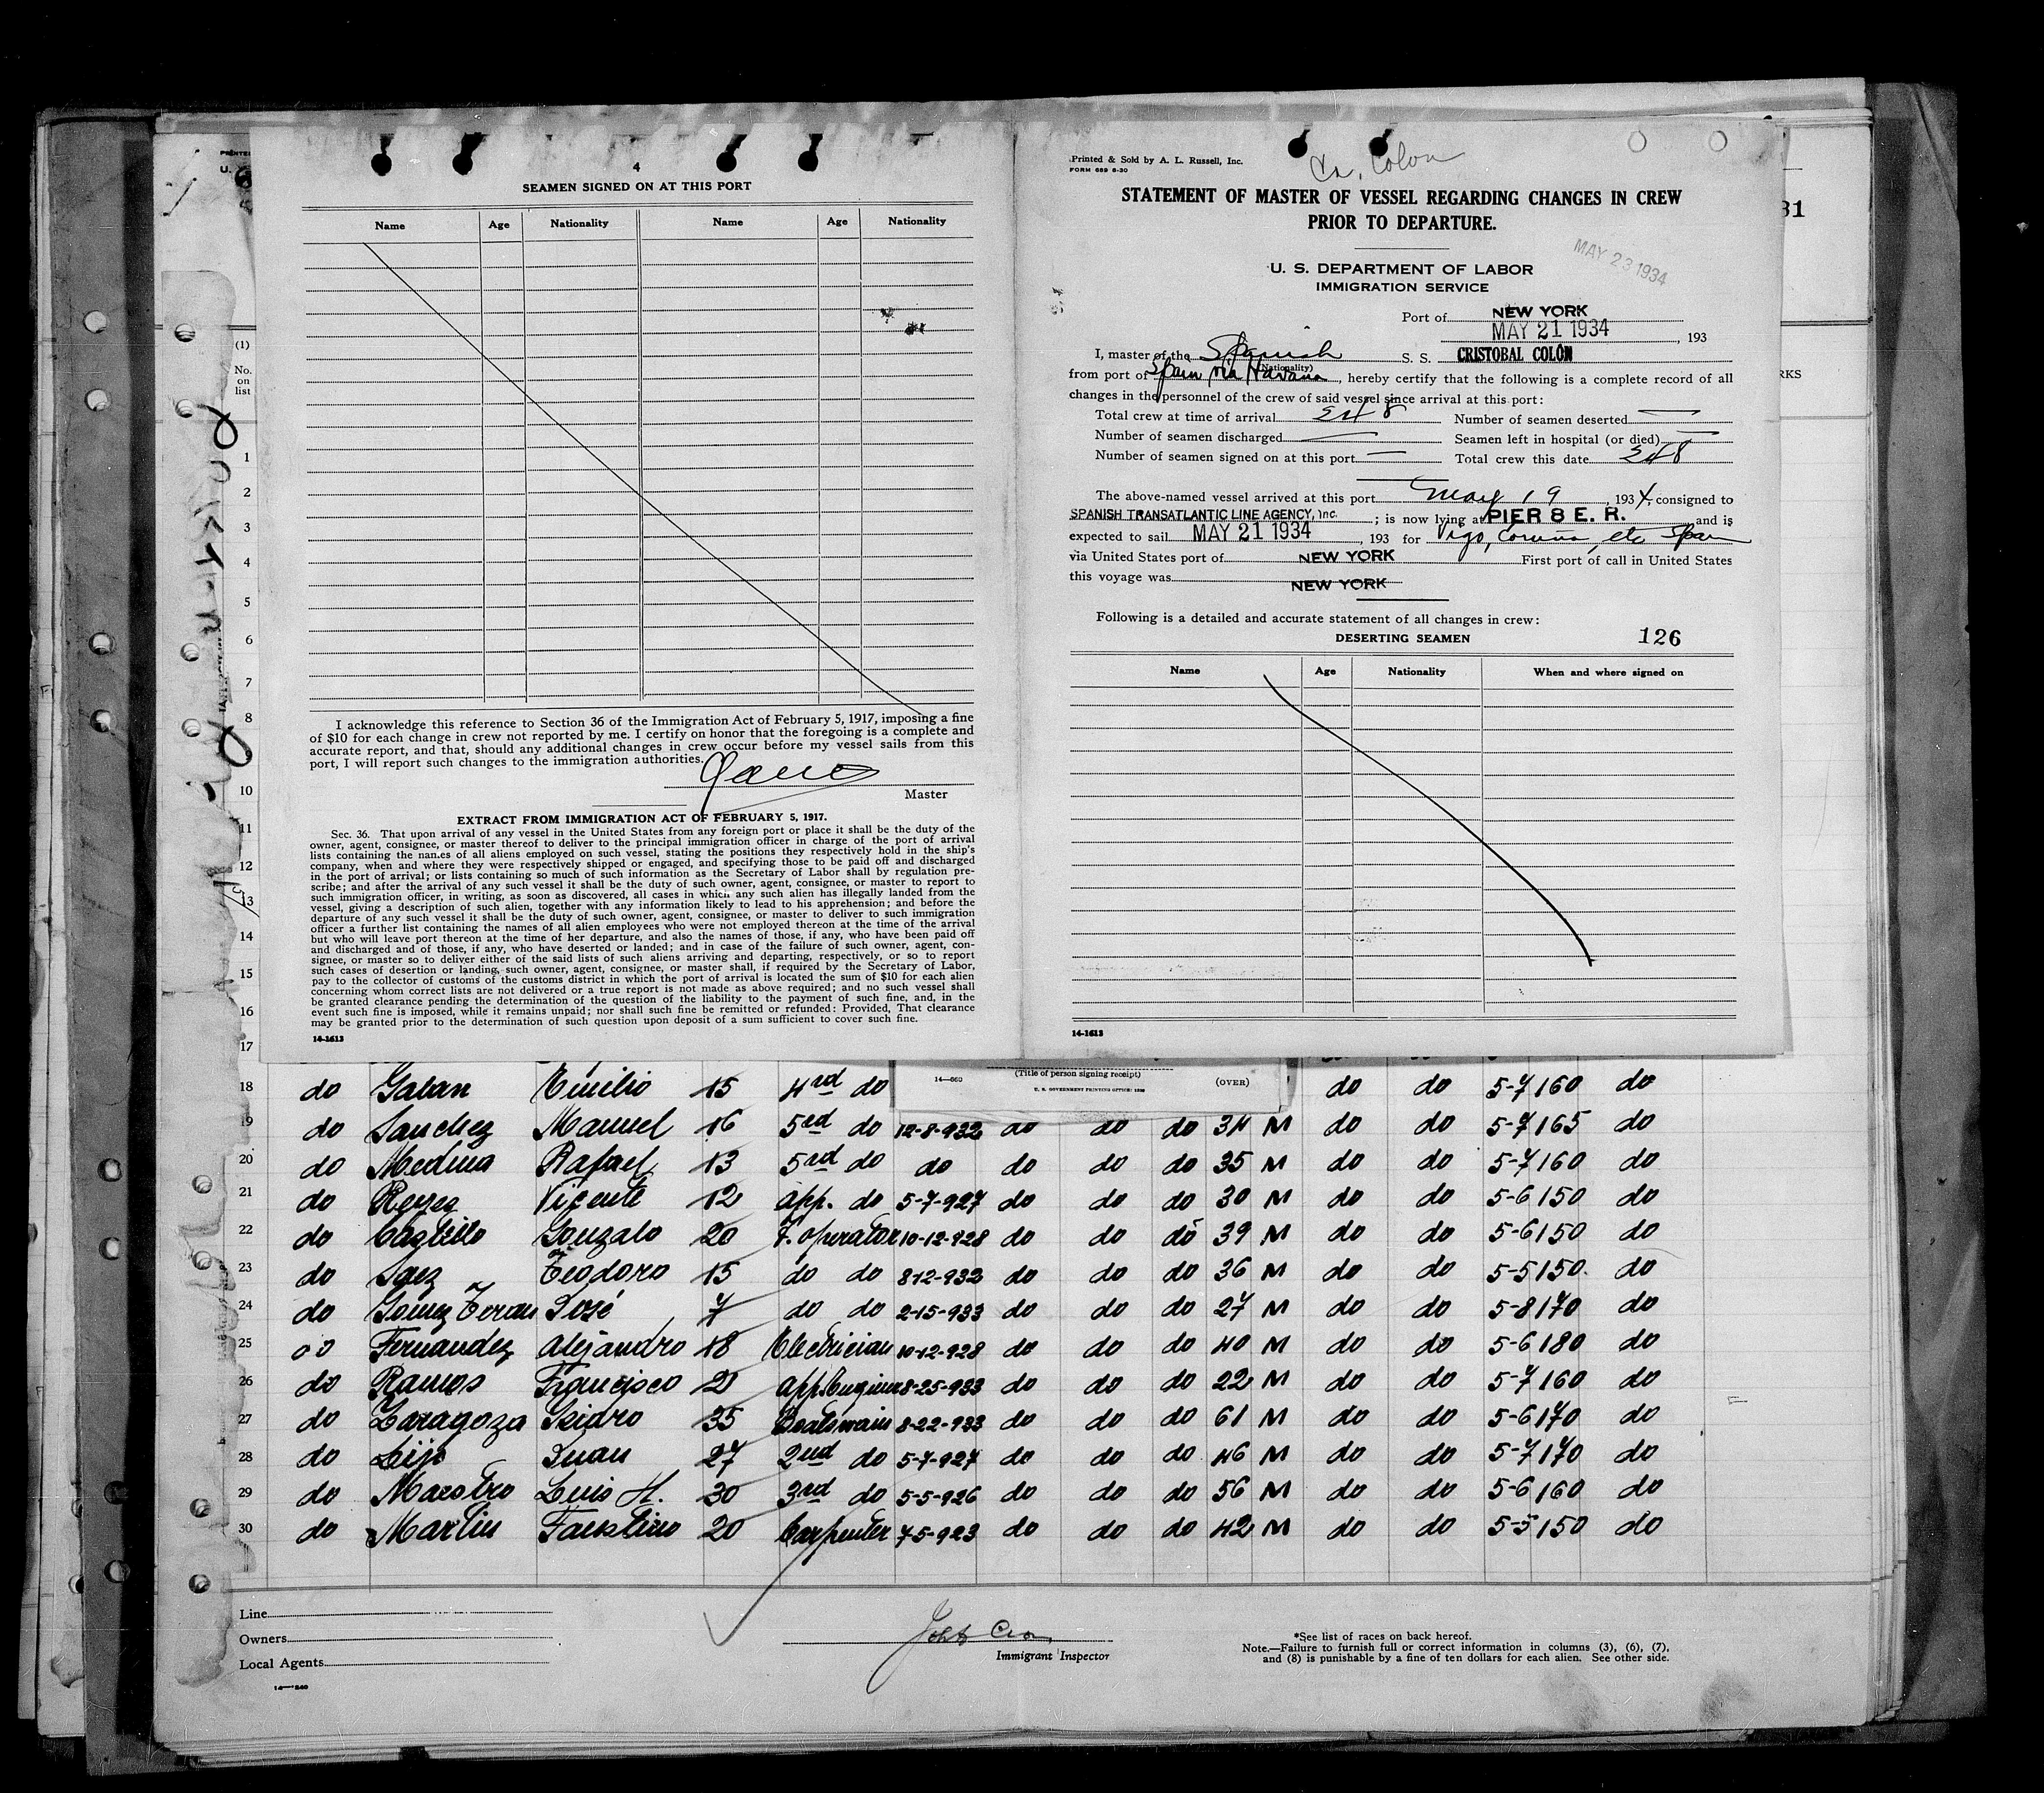 4
SEAMEN SIGNED ON AT THIS PORT
Name Age Nationality Name Age Nationality
I acknowledge this reference to Section 36 of the Immigration Act of February 5, 1917, imposing a fine
of $10 for each change in crew not reported by me. I certify on honor that the foregoing is a complete and
accurate report, and that, should any additional changes in crew occur before my vessel sails from this
port, I will report such changes to the immigration authorities.
Master
EXTRACT FROM IMMIGRATION ACT OF FEBRUARY 5, 1917.
Sec. 36. That upon arrival of any vessel in the United States from any foreign port or place it shall be the duty of the
owner, agent, consignee, or master thereof to deliver to the principal immigration officer in charge of the port of arrival
lists containing the names of all aliens employed on such vessel, stating the positions they respectively hold in the ship's
company, when and where they were respectively shipped or engaged, and specifying those to be paid off and discharged
in the port of arrival; or lists containing so much of such information as the Secretary of Labor shall by regulation pre-
scribe; and after the arrival of any such vessel it shall be the duty of such owner, agent, consignee, or master to report to
such immigration officer, in writing, as soon as discovered, all cases in which any such alien has illegally landed from the
vessel, giving a description of such alien, together with any information likely to lead to his apprehension; and before the
departure of any such vessel it shall be the duty of such owner, agent, consignee, or master to deliver to such immigration
officer a further list containing the names of all alien employees who were not employed thereon at the time of the arrival
but who will leave port thereon at the time of her departure, and also the names of those, if any, who have been paid off
and discharged and of those, if any, who have deserted or landed; and in case of the failure of such owner, agent, con-
signee, or master so to deliver either of the said lists of such aliens arriving and departing, respectively, or so to report
such cases of desertion or landing, such owner, agent, consignee, or master shall, if required by the Secretary of Labor,
pay to the collector of customs of the customs district in which the port of arrival is located the sum of $10 for each alien
concerning whom correct lists are not delivered or a true report is not made as above required; and no such vessel shall
be granted clearance pending the determination of the question of the liability to the payment of such fine, and, in the
event such fine is imposed, while it remains unpaid; nor shall such fine be remitted or refunded: Provided, That clearance
may be granted prior to the determination of such question upon deposit of a sum sufficient to cover such fine.
14-1613
Printed & Sold by A. L. Russell, Inc.
FORM 689 8-30
Colon
STATEMENT OF MASTER OF VESSEL REGARDING CHANGES IN CREW
PRIOR TO DEPARTURE.
MAY 23 1934
U. S. DEPARTMENT OF LABOR
IMMIGRATION SERVICE
Port of NEW YORK
MAY 21 1934, 193
I, master of the Spanish S. S. CRISTOBAL COLON
(Nationality)
from port of Spain via Havana, hereby certify that the following is a complete record of all
changes in the personnel of the crew of said vessel since arrival at this port:
Total crew at time of arrival 248 Number of seamen deserted —
Number of seamen discharged — Seamen left in hospital (or died) —
Number of seamen signed on at this port — Total crew this date 248
The above-named vessel arrived at this port May 19, 1934, consigned to
SPANISH TRANSATLANTIC LINE AGENCY, Inc.; is now lying at PIER 8 E. R. and is
expected to sail MAY 21 1934, 193 for Vigo, Coruna, etc Spain
via United States port of NEW YORK First port of call in United States
this voyage was NEW YORK
Following is a detailed and accurate statement of all changes in crew:
DESERTING SEAMEN 126
Name Age Nationality When and where signed on
14-1613
31
RKS
PRINTED
U. S.
(1)
No.
on
list
1
2
3
4
5
6
7
8
10
11
12
13
14
15
16
17
14—860 (Title of person signing receipt) (OVER)
U. S. GOVERNMENT PRINTING OFFICE
18 do Galan Emilio 15 4rd do do do 5-7 160 do
19 do Sanchez Manuel 16 5rd do 12-8-932 do do do 34 M do do 5-7 165 do
20 do Medina Rafael 13 5rd do do do do do 35 M do do 5-7 160 do
21 do Reyes Vicente 12 app. do 5-7-927 do do do 30 M do do 5-6 150 do
22 do Castillo Gonzalo 20 T. operator 10-12-928 do do do 39 M do do 5-6 150 do
23 do Saez Teodoro 15 do do 8-12-932 do do do 36 M do do 5-5 150 do
24 do Gomez Teran José 7 do do 2-15-933 do do do 27 M do do 5-8 170 do
25 do Fernandez Alejandro 18 Electrician 10-12-928 do do do 40 M do do 5-6 180 do
26 do Ramos Francisco 2 app. Engineer 8-25-933 do do do 22 M do do 5-7 160 do
27 do Zaragoza Isidro 35 Boatswain 8-22-933 do do do 61 M do do 5-6 170 do
28 do Lijo Juan 27 2nd do 5-7-927 do do do 46 M do do 5-7 170 do
29 do Maestro Luis H. 30 3rd do 5-5-926 do do do 56 M do do 5-6 160 do
30 do Martin Faustino 20 Carpenter 7-5-923 do do do 42 M do do 5-5 150 do
Line
Owners
Local Agents
Immigrant Inspector
*See list of races on back hereof.
Note.—Failure to furnish full or correct information in columns (3), (6), (7),
and (8) is punishable by a fine of ten dollars for each alien. See other side.